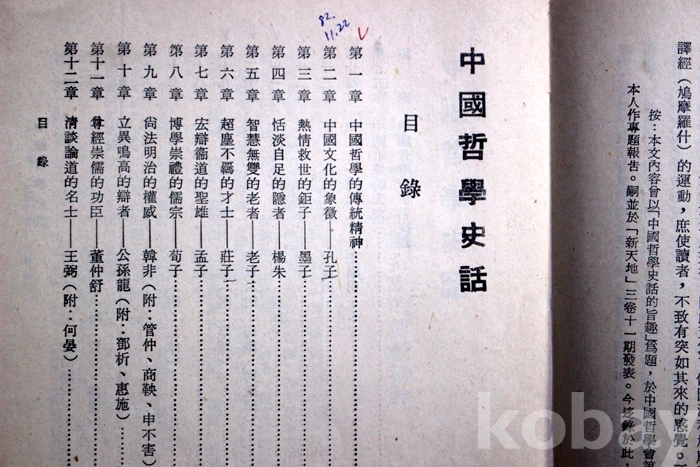 譯經（鳩摩羅什）的運動，庶使讀者，不致有突如其來的感覺。
按：本文內容曾以「中國哲學史話的旨趣」爲題，於中國哲學會第
本人作專題報告。嗣並於「新天地」三卷十一期發表。今迻錄於此
中國哲學史話
目錄
82.
11.22
第一章 中國哲學的傳統精神
第二章 中國文化的象徵——孔子
第三章 熱情救世的鉅子——墨子
第四章 恬淡自足的隱者——楊朱
第五章 智慧無變的老者——老子
第六章 超塵不羈的才士——莊子
第七章 宏辯衞道的聖雄——孟子
第八章 博學崇禮的儒宗——荀子
第九章 尙法明治的權威——韓非（附：管仲、商鞅、申不害）
第十章 立異鳴高的辯者——公孫龍（附：鄧析、惠施）
第十一章 尊經崇儒的功臣——董仲舒
第十二章 清談論道的名士——王弼（附：何晏）
目錄
kobay